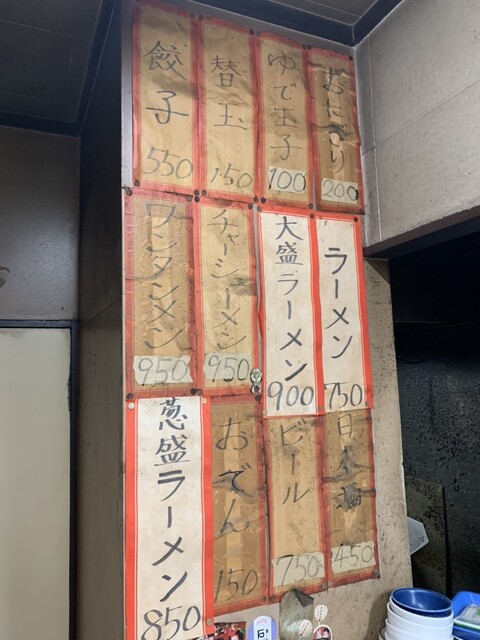 おにぎり
200
ゆで玉子
100
替玉
150
餃子
550
ラーメン
750
大盛ラーメン
900
チャーシューメン
950
ワンタンメン
950
日本酒
450
ビール
750
おでん
150
葱盛ラーメン
850